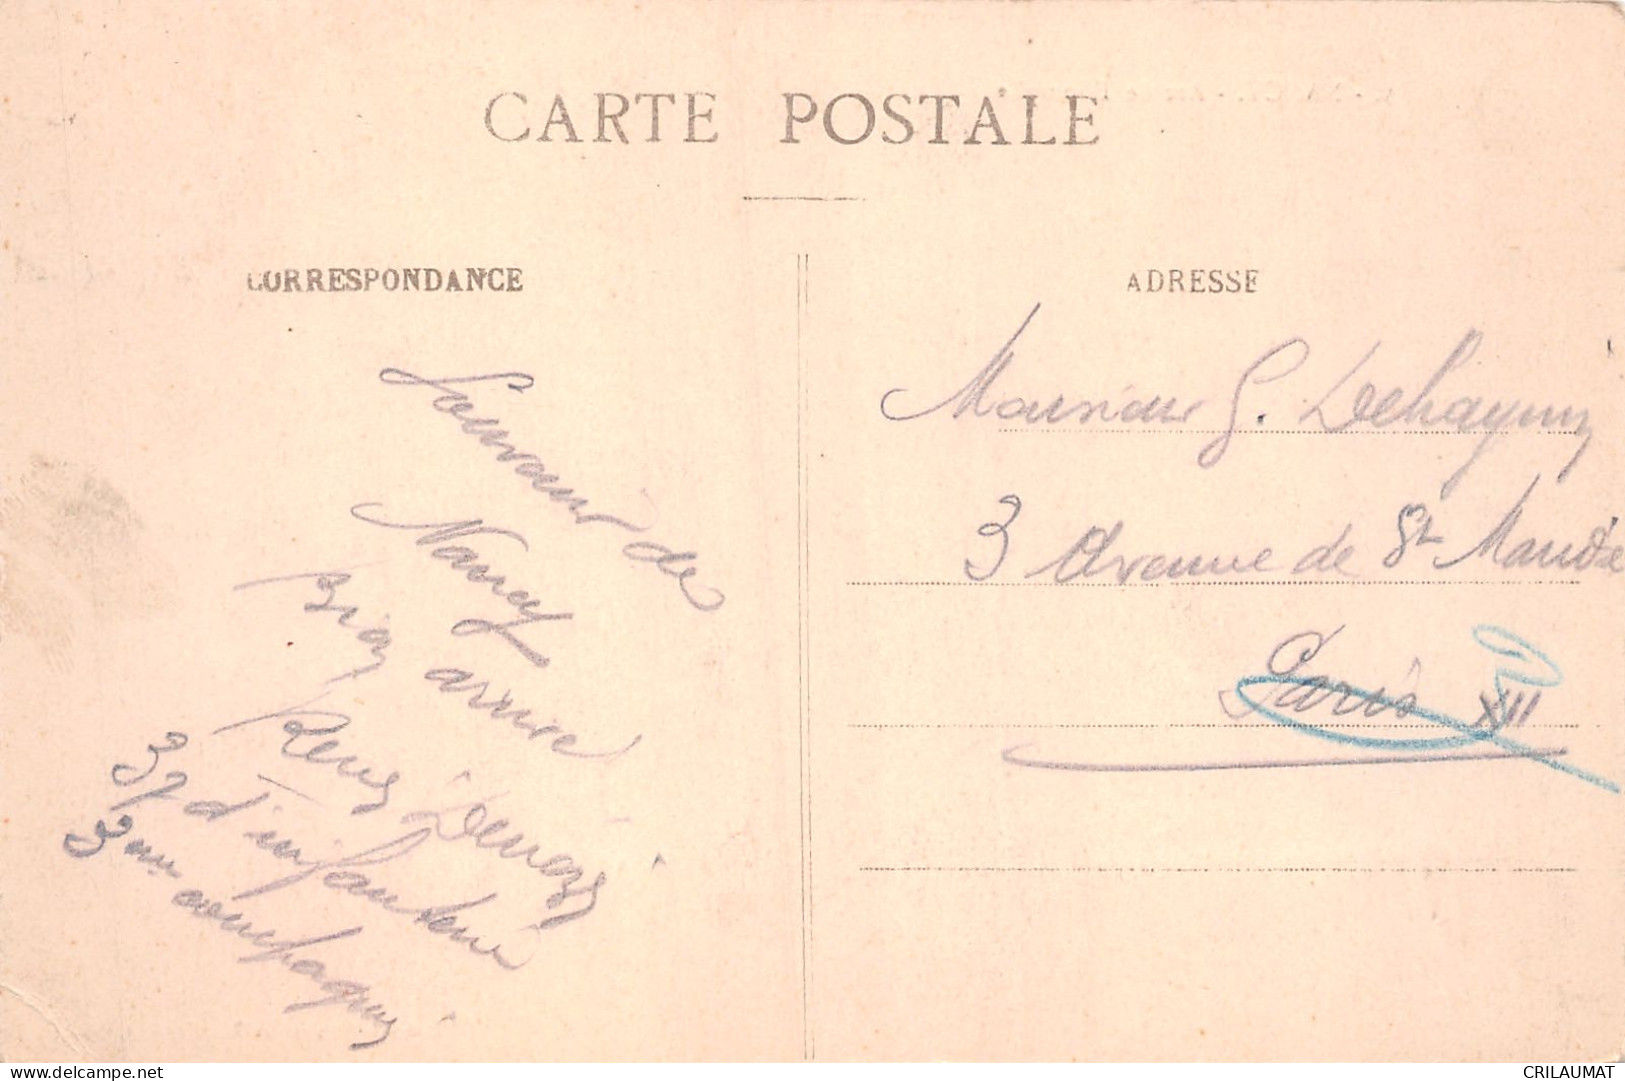 CARTE POSTALE
CORRESPONDANCE
Souvenir de
Nancy
Bien arrivé
René
37 d'infanterie
3ème compagnie
ADRESSE
Monsieur G. Dehaynin
3 Avenue de St Mandé
Paris XII
CRILAUMAT